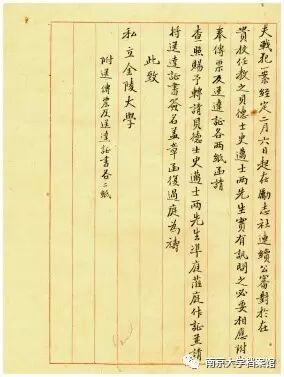 夫戰犯一案經定二月六日起在勵志社連續公審對於在
貴校任教之貝德士史邁士兩先生實有訊問之必要相應附
奉傳票及送達証各兩紙函請
查照賜予轉請貝德士史邁士兩先生準庭蒞庭作証並請
將送達証書簽名盖章函復過庭為禱
此致
私立金陵大學
附送傳票及送達証書各二紙
南京大学档案馆